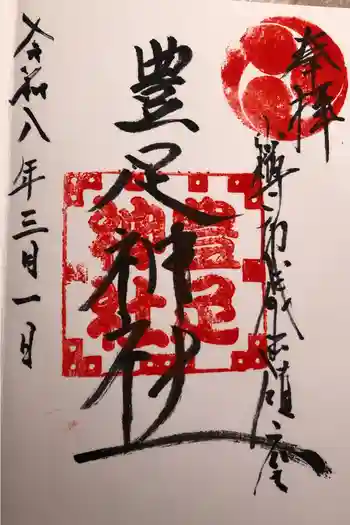 奉拝
豊足神社
豊足
神社
令和八年三月一日